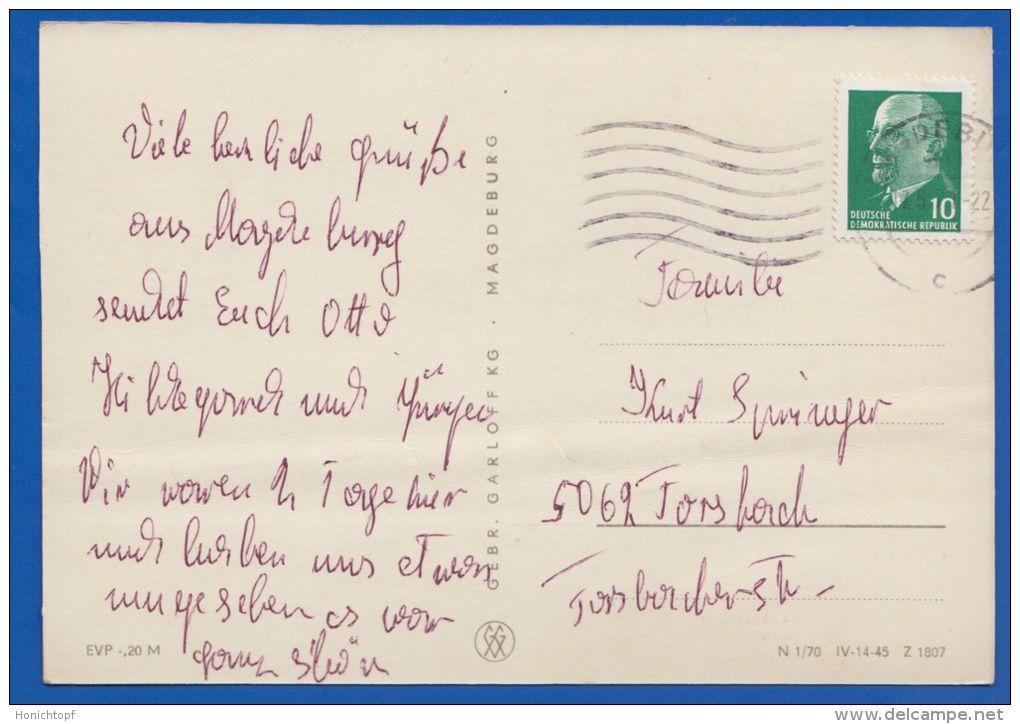 Viele herzliche Grüße
aus Magdeburg
sendet Euch Otto
Hildegard und Jürgen
Wir waren 2 Tage hier
und haben uns etwas
umgesehen es war
ganz schön
EVP -,20 M
GEBR. GARLOFF KG · MAGDEBURG
DEUTSCHE
DEMOKRATISCHE REPUBLIK
10
C
Familie
Kurt Springer
5062 Forsbach
Forsbacherstr
N 1/70 IV-14-45 Z 1807
Honichtopf
www.delcampe.net